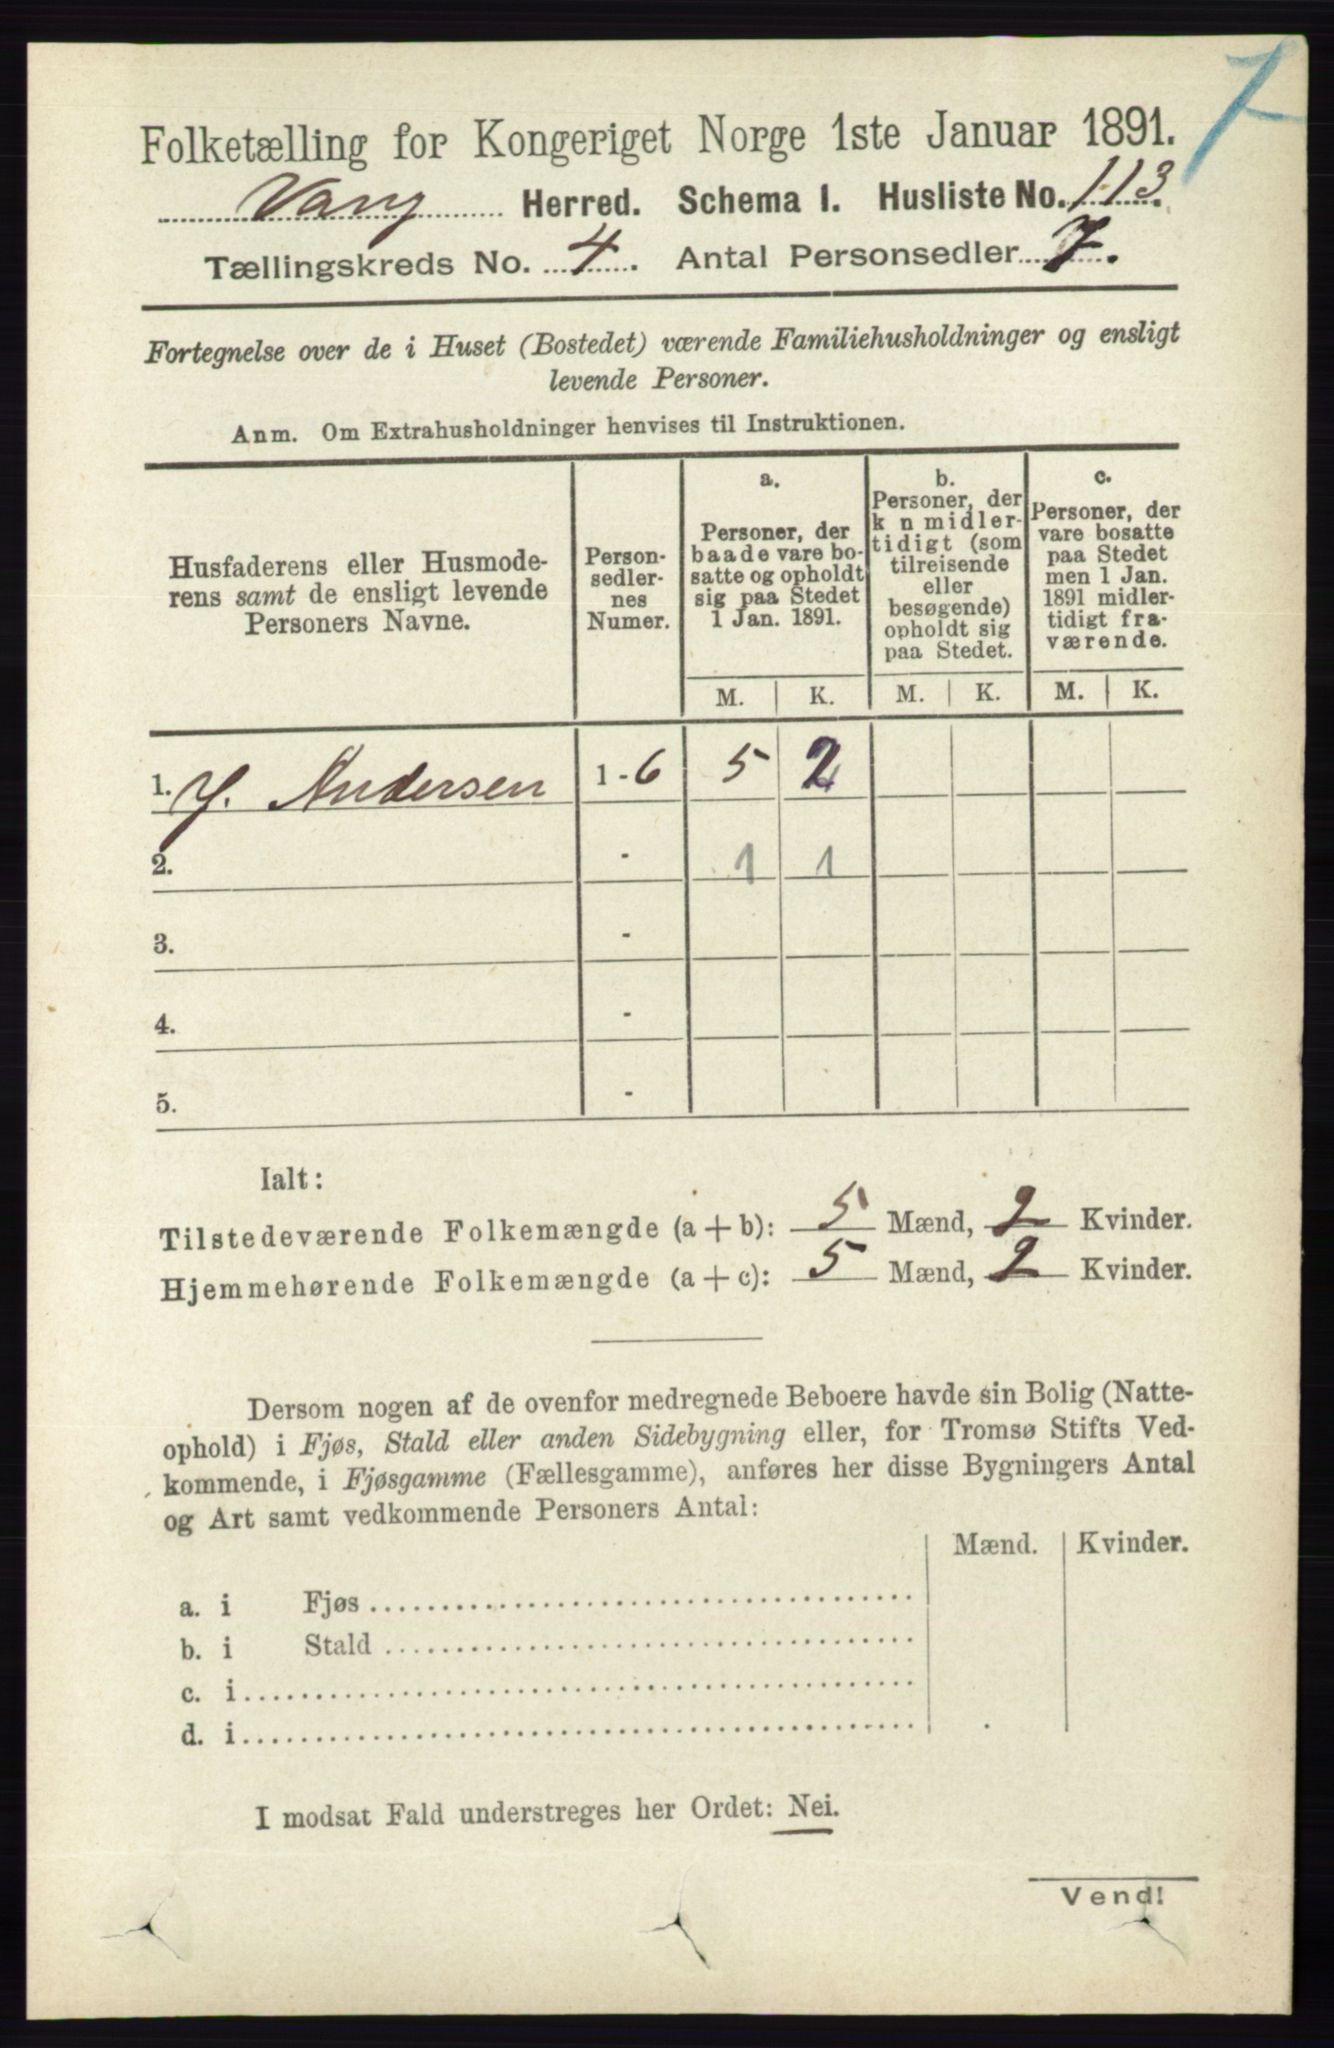 7
Folketælling for Kongeriget Norge 1ste Januar 1891.
Vang Herred. Schema I. Husliste No. 113.
Tællingskreds No. 4. Antal Personsedler 7.
Fortegnelse over de i Huset (Bostedet) værende Familiehusholdninger og ensligt
levende Personer.
Anm. Om Extrahusholdninger henvises til Instruktionen.
Husfaderens eller Husmode-
rens samt de ensligt levende
Personers Navne.
Person-
sedler-
nes
Numer.
a.
Personer, der
baade vare bo-
satte og opholdt
sig paa Stedet
1 Jan. 1891.
b.
Personer, der
k n midler-
tidigt (som
tilreisende
eller
besøgende)
opholdt sig
paa Stedet.
c.
Personer, der
vare bosatte
paa Stedet
men 1 Jan.
1891 midler-
tidigt fra-
værende.
M. K. M. K. M. K.
1. Andersen 1-6 5 2
2. - 1 1
3. -
4. -
5. -
Ialt:
Tilstedeværende Folkemængde (a+b): 5 Mænd, 2 Kvinder.
Hjemmehørende Folkemængde (a+c): 5 Mænd, 2 Kvinder.
Dersom nogen af de ovenfor medregnede Beboere havde sin Bolig (Natte-
ophold) i Fjøs, Stald eller anden Sidebygning eller, for Tromsø Stifts Ved-
kommende, i Fjøsgamme (Fællesgamme), anføres her disse Bygningers Antal
og Art samt vedkommende Personers Antal:
Mænd. Kvinder.
a. i Fjøs
b. i Stald
c. i
d. i
I modsat Fald understreges her Ordet: Nei.
Vend!